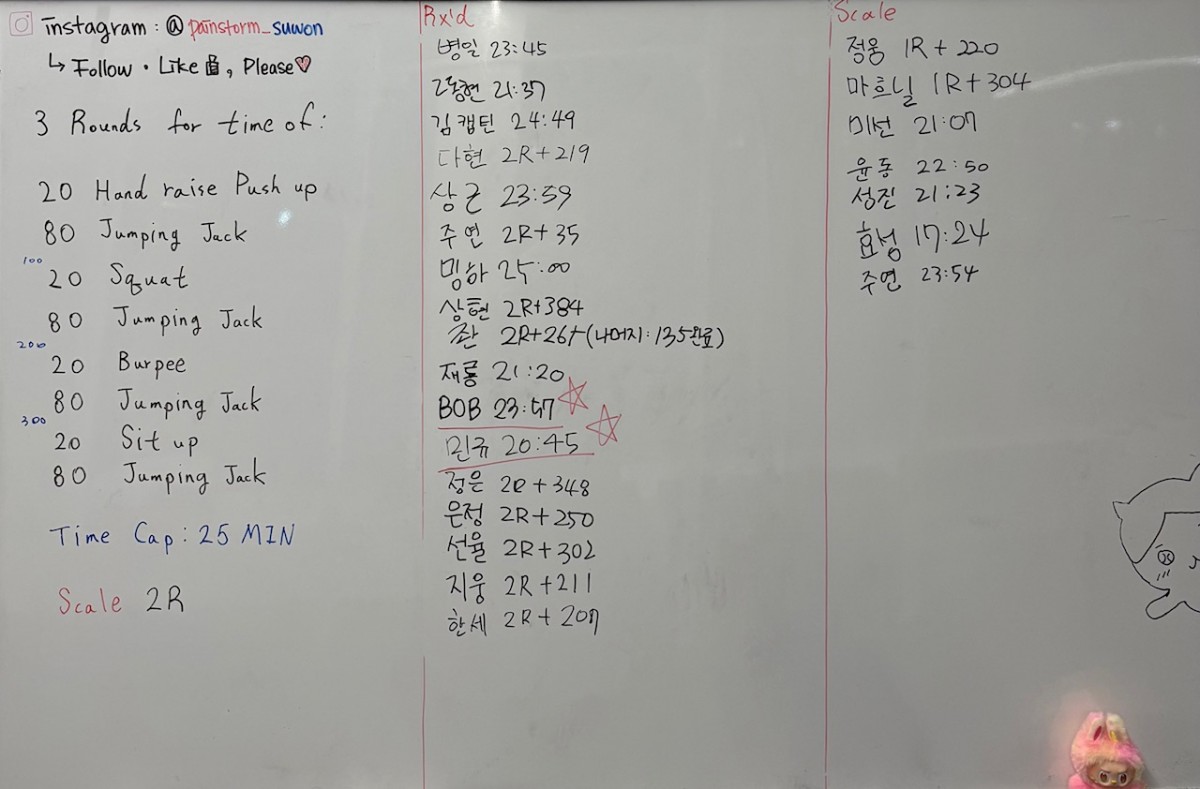 instagram : @painstorm_suwon
↳ Follow · Like 👍, Please♡
3 Rounds for time of:
20 Hand raise Push up
80 Jumping Jack
100
20 Squat
80 Jumping Jack
200
20 Burpee
80 Jumping Jack
300
20 Sit up
80 Jumping Jack
Time Cap : 25 MIN
Scale 2R
Rx'd
병일 23:45
고동현 21:37
김캡틴 24:49
다현 2R+219
상근 23:59
주연 2R+35
밍하 25:00
상현 2R+384
좐 2R+267 (나머지: 135완료)
재룡 21:20
BOB 23:47
민규 20:45
정은 2R+348
은정 2R+250
선율 2R+302
지웅 2R+211
한세 2R+207
Scale
정웅 1R+220
마흐닐 1R+304
미선 21:07
윤동 22:50
성진 21:23
효성 17:24
주연 23:54